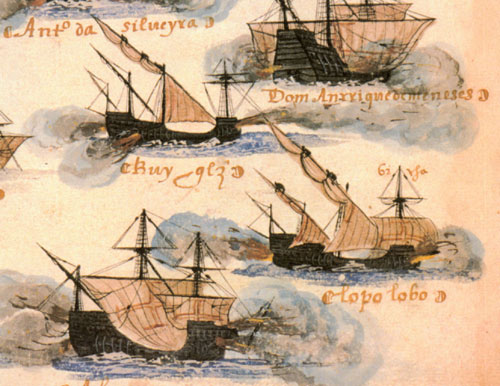 Antº da silueyra
Dom Anrrique de meneses
Ruy glz
lopo lobo